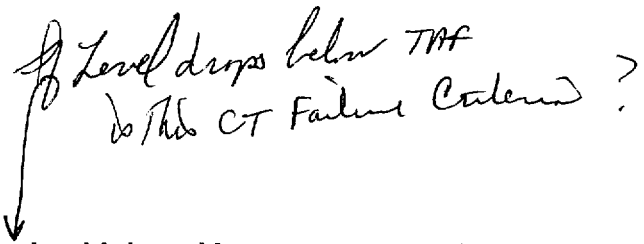 If Level drops below TAF
is this CT Failure Criteria ?